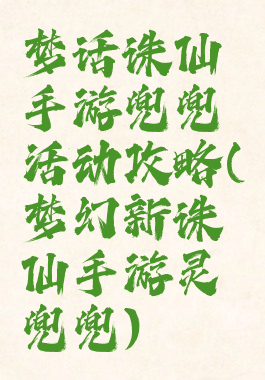 梦话诛仙
手游兜兜
活动攻略(
梦幻新诛
仙手游灵
兜兜)